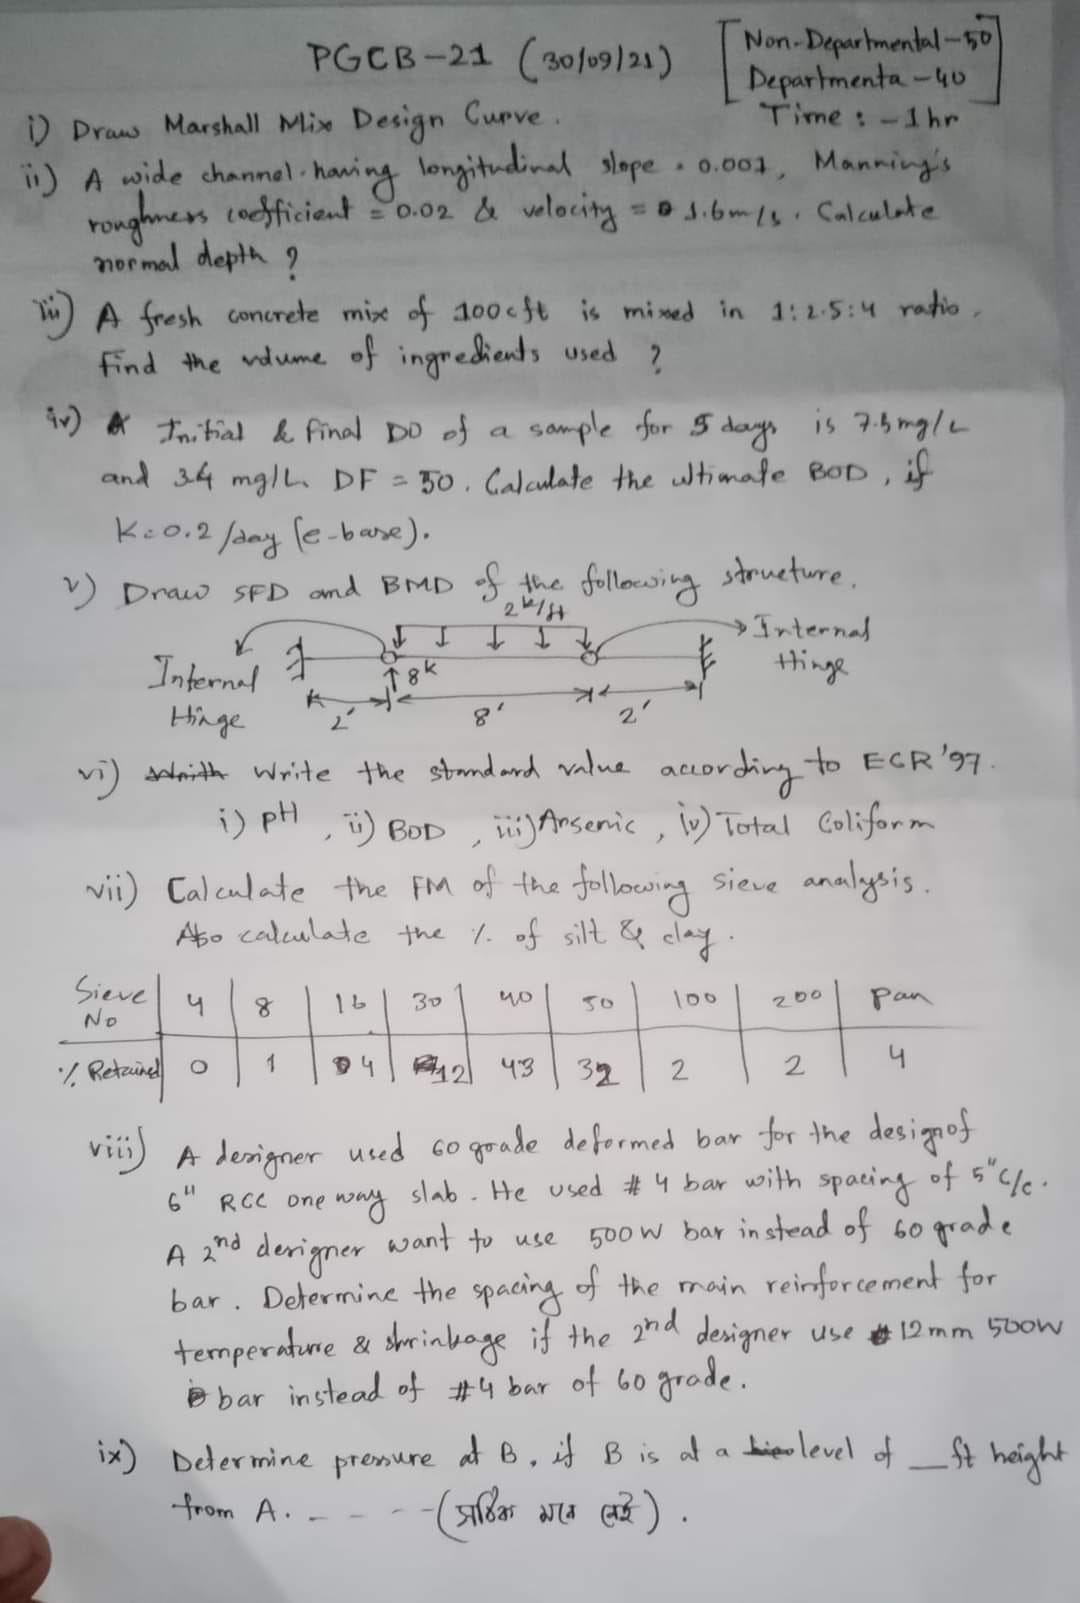 PGCB-21 (30/09/21)
[Non-Departmental-50
Departmenta-40]
Time :-1hr
i) Draw Marshall Mix Design Curve.
ii) A wide channel having longitudinal slope = 0.001, Manning's
roughness coefficient = 0.02 & velocity = 1.6m/s. Calculate
normal depth ?
iii) A fresh concrete mix of 100cft is mixed in 1:2.5:4 ratio.
Find the volume of ingredients used ?
iv) Initial & final DO of a sample for 5 days is 7.5mg/L
and 3.4 mg/L. DF = 50. Calculate the ultimate BOD, if
K=0.2/day (e-base).
v) Draw SFD and BMD of the following structure.
2k/ft
Internal Hinge
Internal Hinge
8k
2' 8' 2'
vi) Write the standard value according to ECR'97.
i) pH, ii) BOD, iii) Arsenic, iv) Total Coliform
vii) Calculate the FM of the following sieve analysis.
Also calculate the % of silt & clay.
Sieve No 4 8 16 30 40 50 100 200 pan
% Retained 0 1 4 12 43 32 2 2 4
viii) A designer used 60 grade deformed bar for the design of
6" RCC one way slab. He used #4 bar with spacing of 5" c/c.
A 2nd designer want to use 500W bar instead of 60 grade
bar. Determine the spacing of the main reinforcement for
temperature & shrinkage if the 2nd designer use 12mm 500W
bar instead of #4 bar of 60 grade.
ix) Determine pressure at B, if B is at a level of __ ft height
from A. - - - - -(সঠিক মনে নেই).